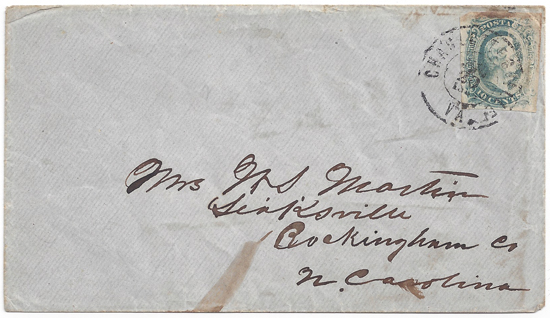 POSTA
CHA
VA
TEN CENTS
Mrs W S Martin
Leaksville
Rockingham Co
N. Carolina